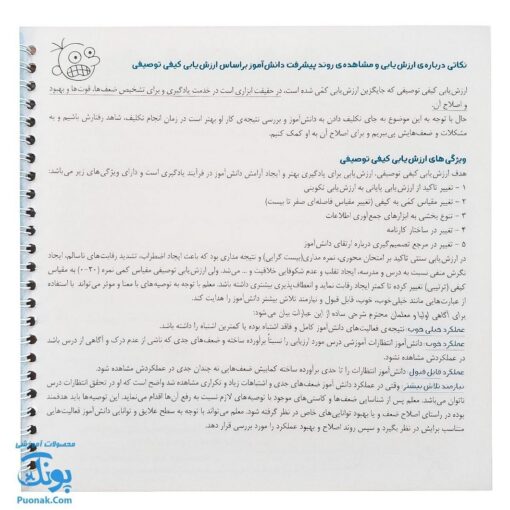 نکاتی درباره‌ی ارزش‌یابی و مشاهده‌ی روند پیشرفت دانش‌آموز براساس ارزش‌یابی کیفی توصیفی
ارزش‌یابی کیفی توصیفی که جایگزین ارزش‌یابی کمّی شده است، در حقیقت ابزاری است در خدمت یادگیری و برای تشخیص ضعف‌ها، قوت‌ها و بهبود
و اصلاح آن.
حال با توجه به این موضوع به جای تکلیف دادن به دانش‌آموز و بررسی نتیجه‌ی کار او بهتر است در زمان انجام تکلیف، شاهد رفتارش باشیم و به
مشکلات و ضعف‌هایش پی‌ببریم و برای اصلاح آن به او کمک کنیم.
ویژگی‌های ارزش‌یابی کیفی توصیفی
هدف ارزش‌یابی کیفی توصیفی، ارزش‌یابی برای یادگیری بهتر و ایجاد آرامش دانش‌آموز در فرآیند یادگیری است و دارای ویژگی‌های زیر می‌باشد:
۱ - تغییر تاکید از ارزش‌یابی پایانی به ارزش‌یابی تکوینی
۲ - تغییر مقیاس کمّی به کیفی (تغییر مقیاس فاصله‌ای صفر تا بیست)
۳ - تنوع بخشی به ابزارهای جمع‌آوری اطلاعات
۴ - تغییر در ساختار کارنامه
۵ - تغییر در مرجع تصمیم‌گیری درباره ارتقای دانش‌آموز
در ارزش‌یابی سنتی تاکید بر امتحان محوری، نمره مداری(بیست گرایی) و نتیجه مداری بود که باعث ایجاد اضطراب، تشدید رقابت‌های ناسالم، ایجاد
نگرش منفی نسبت به درس و مدرسه، ایجاد تقلب و عدم شکوفایی خلاقیت و ... می‌شد. ولی ارزش‌یابی توصیفی مقیاس کمی نمره (۲۰-۰) به مقیاس
کیفی (ترتیبی) تغییر کرده تا کمتر ایجاد رقابت نماید و انعطاف‌پذیری بیشتری داشته باشد. معلم با توجه به توصیه‌های با معنا و موثر می‌تواند با استفاده
از عبارت‌هایی مانند خیلی‌خوب، خوب، قابل قبول و نیازمند تلاش بیشتر دانش‌آموز را هدایت کند.
برای آگاهی اولیا و معلمان محترم شرحی ساده از این عبارات بیان می‌شود:
عملکرد خیلی خوب: نتیجه‌ی فعالیت‌های دانش‌آموز کامل و فاقد اشتباه بوده یا کمترین اشتباه را داشته باشد.
عملکرد خوب: دانش‌آموز انتظارات آموزشی درس مورد ارزیابی را نسبتاً برآورده ساخته و ضعف‌های جدی که ناشی از عدم درک و آگاهی از درس باشد
در عملکردش مشاهده نشود.
عملکرد قابل قبول: دانش‌آموز انتظارات را تا حدی برآورده ساخته کمابیش ضعف‌هایی نه چندان جدی در عملکردش مشاهده شود.
نیازمند تلاش بیشتر: وقتی در عملکرد دانش آموز ضعف‌های جدی و اشتباهات زیاد و تکراری مشاهده شد واضح است که او در تحقق انتظارات درس
ناتوان می‌باشد. معلم پس از شناسایی ضعف و کاستی‌های موجود با توصیه‌های لازم نسبت به رفع آن‌ها اقدام می‌نماید. این توصیه‌ها باید هدفمند
بوده در راستای اصلاح ضعف و یا بهبود توانایی‌های خاص در نظر گرفته شود. معلم می‌تواند با توجه به سطح علایق و توانایی دانش‌آموز فعالیت‌هایی
متناسب برایش در نظر بگیرد و سپس روند اصلاح و بهبود عملکرد را مورد بررسی قرار دهد.
محصولات آموزشی
پونک
Puonak.Com